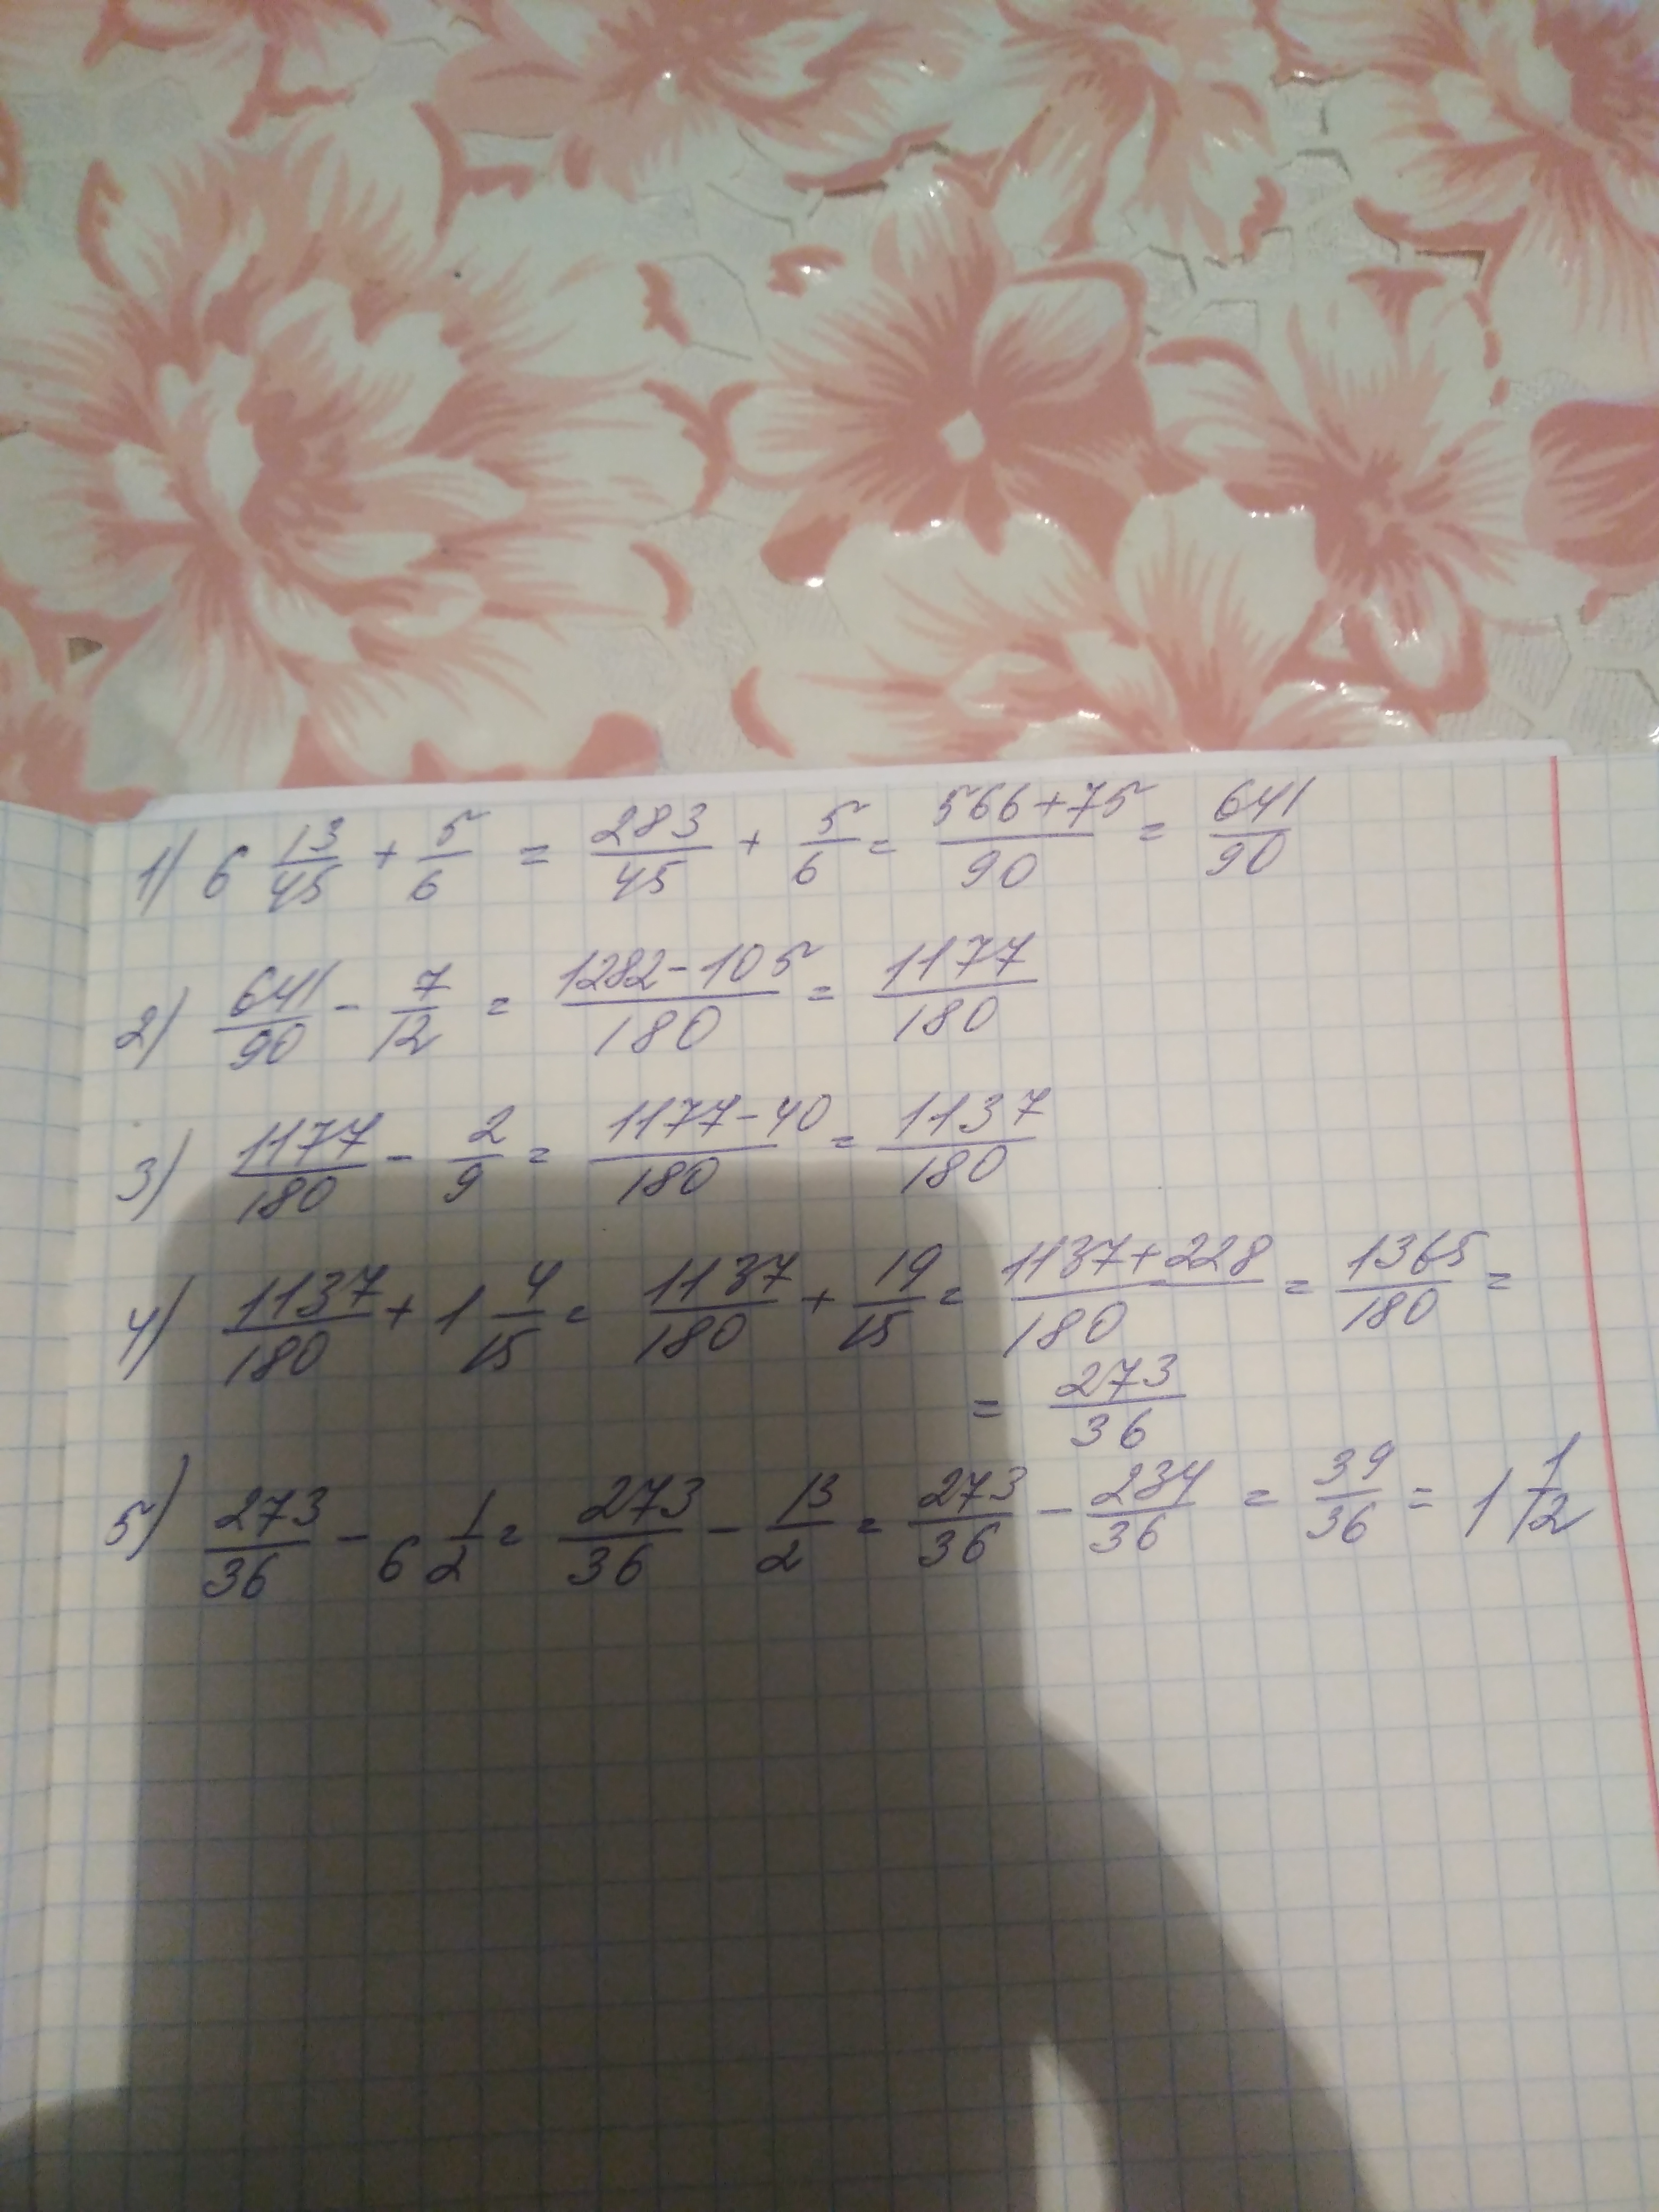 1) 6 13/45 + 5/6 = 283/45 + 5/6 = 566+75/90 = 641/90
2) 641/90 - 7/12 = 1282-105/180 = 1177/180
3) 1177/180 - 2/9 = 1177-40/180 = 1137/180
4) 1137/180 + 1 4/15 = 1137/180 + 19/15 = 1137+228/180 = 1365/180 =
= 273/36
5) 273/36 - 6 1/2 = 273/36 - 13/2 = 273/36 - 234/36 = 39/36 = 1 1/12